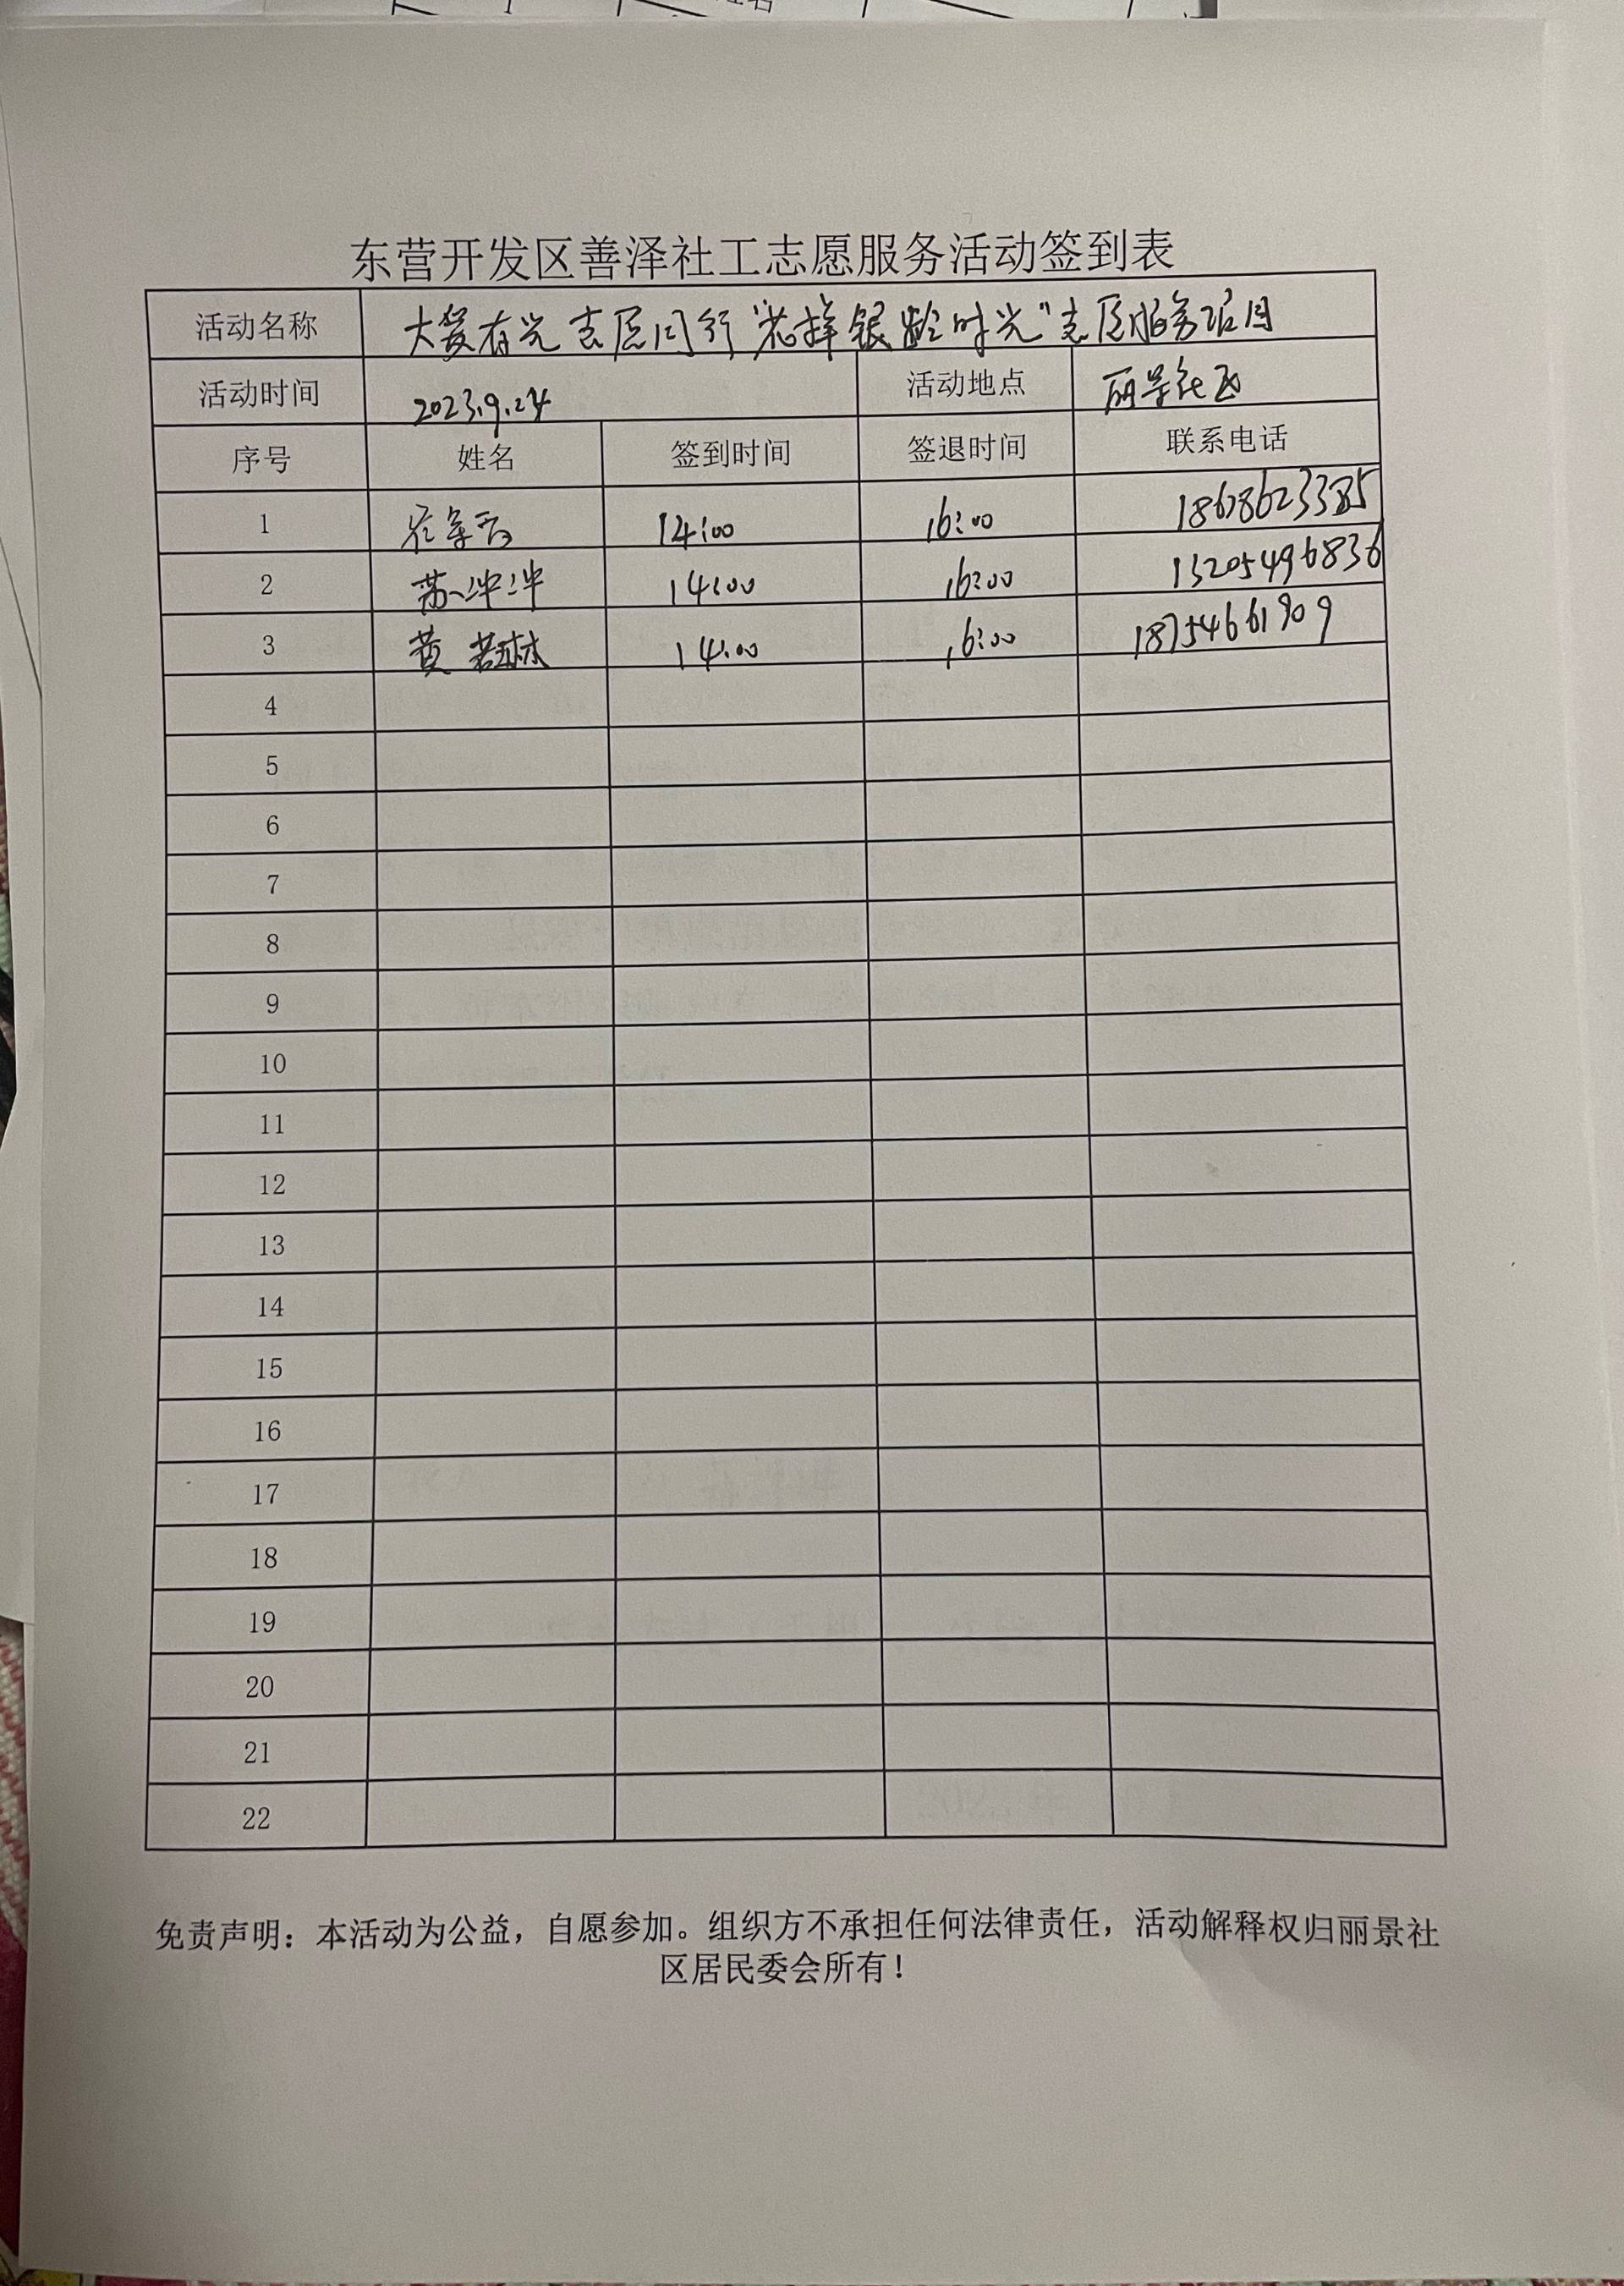 东营开发区善泽社工志愿服务活动签到表
活动名称 大爱有光 志愿同行"花样银龄时光"志愿服务项目
活动时间 2023.9.24 活动地点 丽景社区
序号 姓名 签到时间 签退时间 联系电话
1 14:00 16:00
2 苏 14:00 16:00 13205496836
3 黄若林 14:00 16:00 18754661909
4
5
6
7
8
9
10
11
12
13
14
15
16
17
18
19
20
21
22
免责声明：本活动为公益，自愿参加。组织方不承担任何法律责任，活动解释权归丽景社
区居民委会所有！